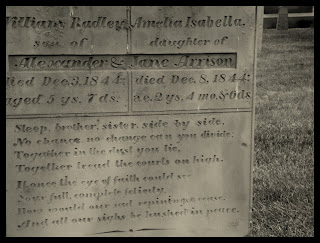 William Radley, Amelia Isabella,
son of daughter of
Alexander & Jane Arrison
died Dec. 3, 1844: died Dec. 8, 1844:
aged 5 ys, 7 ds: ae. 2 ys, 4 mo. & 6 ds
Sleep, brother, sister, side by side,
No chance, no change can you divide,
Together in the dust you lie,
Together tread the courts on high.
If once the eye of faith could see
Your full, complete felicity,
How would our sad repining cease,
And all our sighs be hushed in peace.